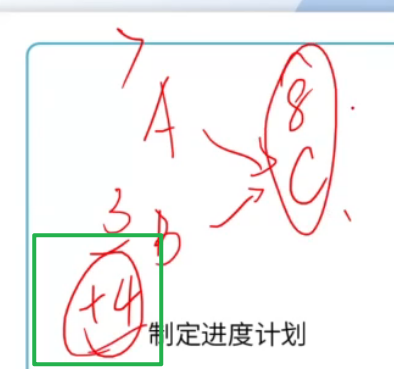 7
8
A
C
3
B
+4
制定进度计划